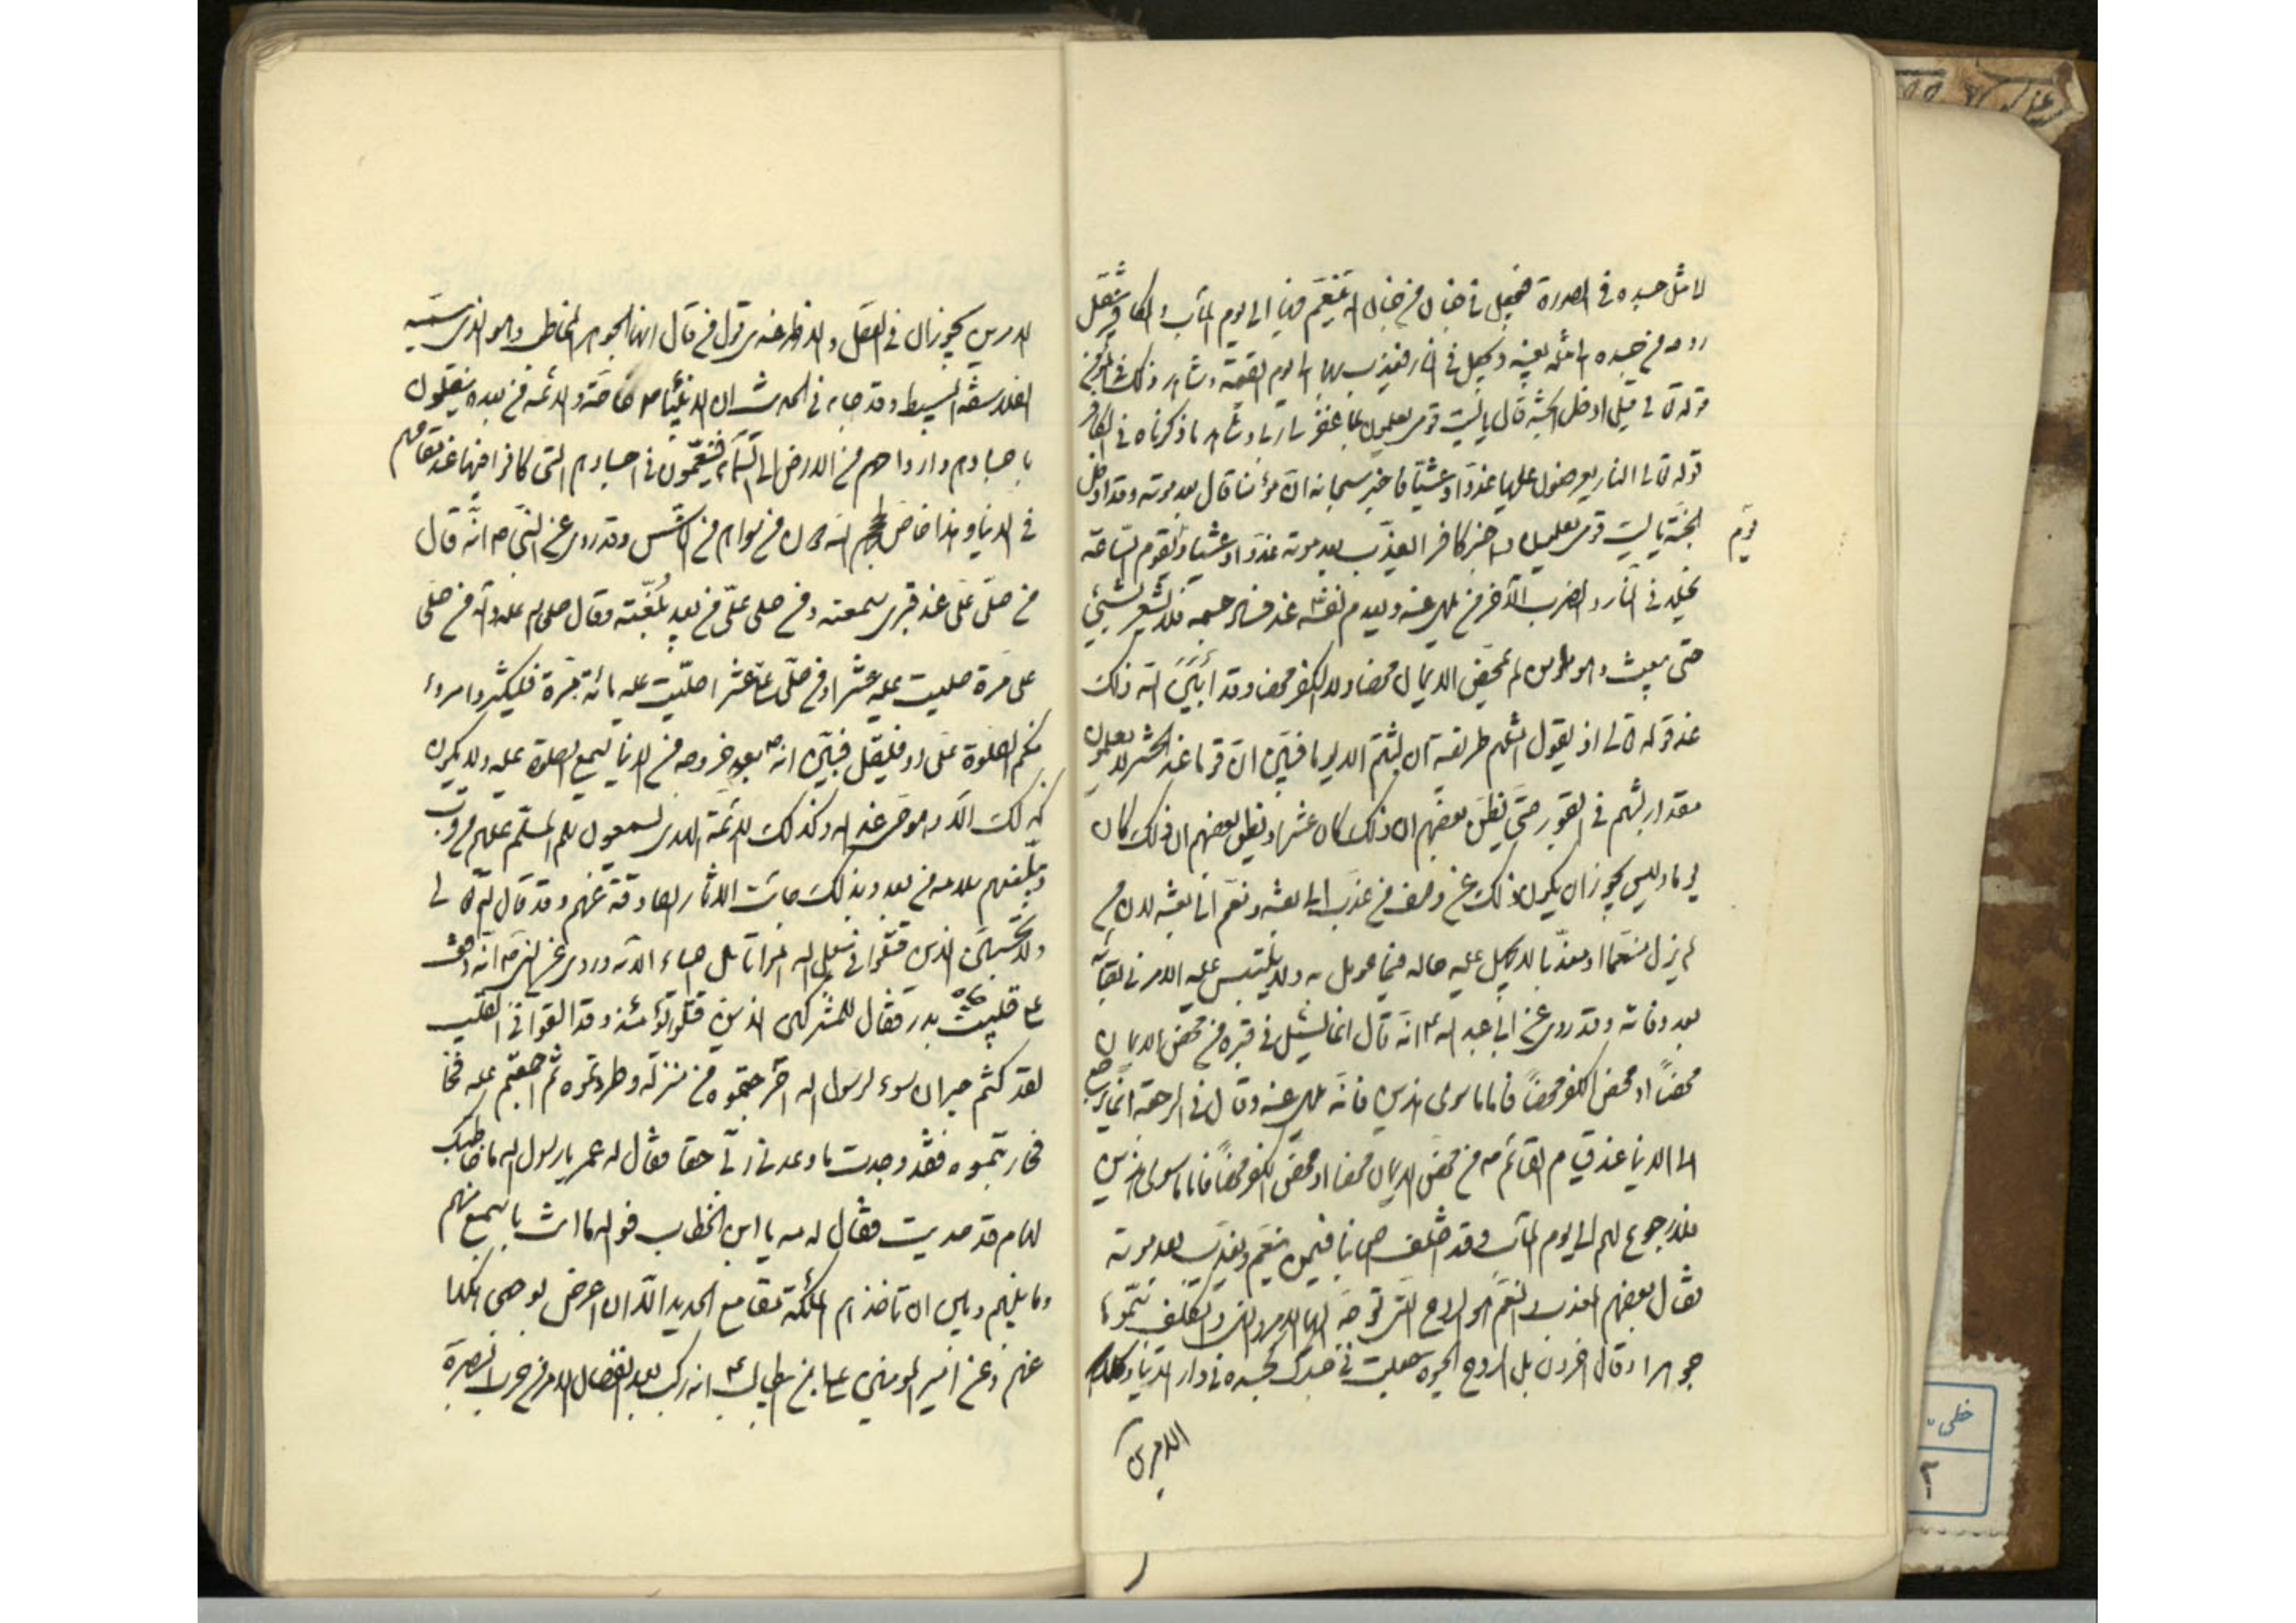 لا مثل جسده في الصورة فيجعل في جنان من جنان الله يتنعم فيها الى يوم المآب والكافر ينتقل
روحه من جسده الى مثله بعينه ويجعل في النار فيعذب بها الى يوم القيمة وشاهد ذلك في المؤمن
قوله تعالى قيل ادخل الجنة قال يا ليت قومي يعلمون بما غفر لي ربي وشاهد ما ذكرناه في الكافر
قوله تعالى النار يعرضون عليها غدوا وعشيا فاخبر سبحانه ان مؤمنا قال بعد موته وقد ادخل
الجنة يا ليت قومي يعلمون واخبر كافرا يعذب بعد موته غدوا وعشيا ويوم تقوم الساعة
يوم
يخلد في النار والضرب الآخر من يلهى عنه ويعدم نفسه عند فساد جسمه فلا يشعر بشيئ
حتى يبعث وهو من لم يمحض الايمان محضا ولا الكفر محضا وقد أبيّن الله ذلك
عند قوله تعالى اذ يقول امثلهم طريقة ان لبثتم الا يوما فبيّن ان قوما عند الحشر لا يعلمون
مقدار لبثهم في القبور حتى يظن بعضهم ان ذلك كان عشرا ويظن بعضهم ان ذلك كان
يوما وليس يجوز ان يكون ذلك عن وصف من عذب الى بعثه ونعم الى بعثه لان من
لم يزل منعما او معذبا لا يجهل عليه حاله فيما عومل به ولا يلتبس عليه الامر في بقائه
بعد وفاته وقد روى عن ابي عبد الله ع انه قال انما يسئل في قبره من محض الايمان
محضاً او محض الكفر محضاً فاما ما سوى هذين فانه يلهى عنه وقال في الرجعة انما يرجع
الى الدنيا عند قيام القائم من محض الايمان محضا او محض الكفر محضاً فاما ما سوى هذين
فلا رجوع لهم الى يوم المآب وقد اختلف اصحابنا فيمن ينعم ويعذب بعد موته
فقال بعضهم المعذب والمنعم هو الروح التى توجه اليها الامر والنهى والتكليف سموها
جوهرا وقال آخرون بل الروح الحيوة جعلت في جسد كجسده في دار الدنيا وكلا
الامرين
الامرين يجوزان في العقل والاظهر عندي قول من قال انها الجوهر المخاطب وهو الذي يسميه
الفلاسفة البسيط وقد جاء في الحديث ان الانبيآء ص خاصة والائمة من بعده ينقلون
باجسادهم وارواحهم من الارض الى السمآء فيتنعمون في اجسادهم التى كانوا فيها عند مقامهم
في الدنيا وهذا خاص لحجج الله دون من سواهم من الناس وقد روى عن النبي ص انه قال
من صلّى علىّ عند قبري سمعته ومن صلى علىّ من بعيد بلّغته وقال صلى الله عليه وآله من صلى
على مرة صليت عليه عشرا ومن صلى علىّ عشرا صليت عليه مائة مرة فليكثر امرء
منكم الصلوة علىّ او فليقل فبيّن انه ص بعد خروجه من الدنيا يسمع الصلوة عليه ولا يكون
كذلك الا وهو حى عند الله وكذلك الائمة الهدى يسمعون سلام المسلم عليهم من قرب
ويبلغهم سلامه من بعد وبذلك جائت الاثار الصادقة عنهم وقد قال الله تعالى
ولا تحسبن الذين قتلوا في سبيل الله امواتا بل احياء الآية وروى عن النبي ص انه وقف
على قليب بدر فقال للمشركين الذين قتلوا يومئذ وقد القوا في القليب
لقد كنتم جيران سوء لرسول الله اخرجتموه من منزله وطردتموه ثم اجتمعتم عليه فحا
فحاربتموه فقد وجدت ما وعدني ربّي حقا فقال له عمر يا رسول الله ما خطابك
لهام قد صديت فقال له مه يا ابن الخطاب فوالله ما انت باسمع منهم
وما بينهم وبين ان تاخذهم الملئكة بمقامع الحديد الا ان اعرض بوجهى هكذا
عنهم وعن امير المومنين على بن ابي طالب ع انه ركب بعد انفصال الامر من حرب البصرة